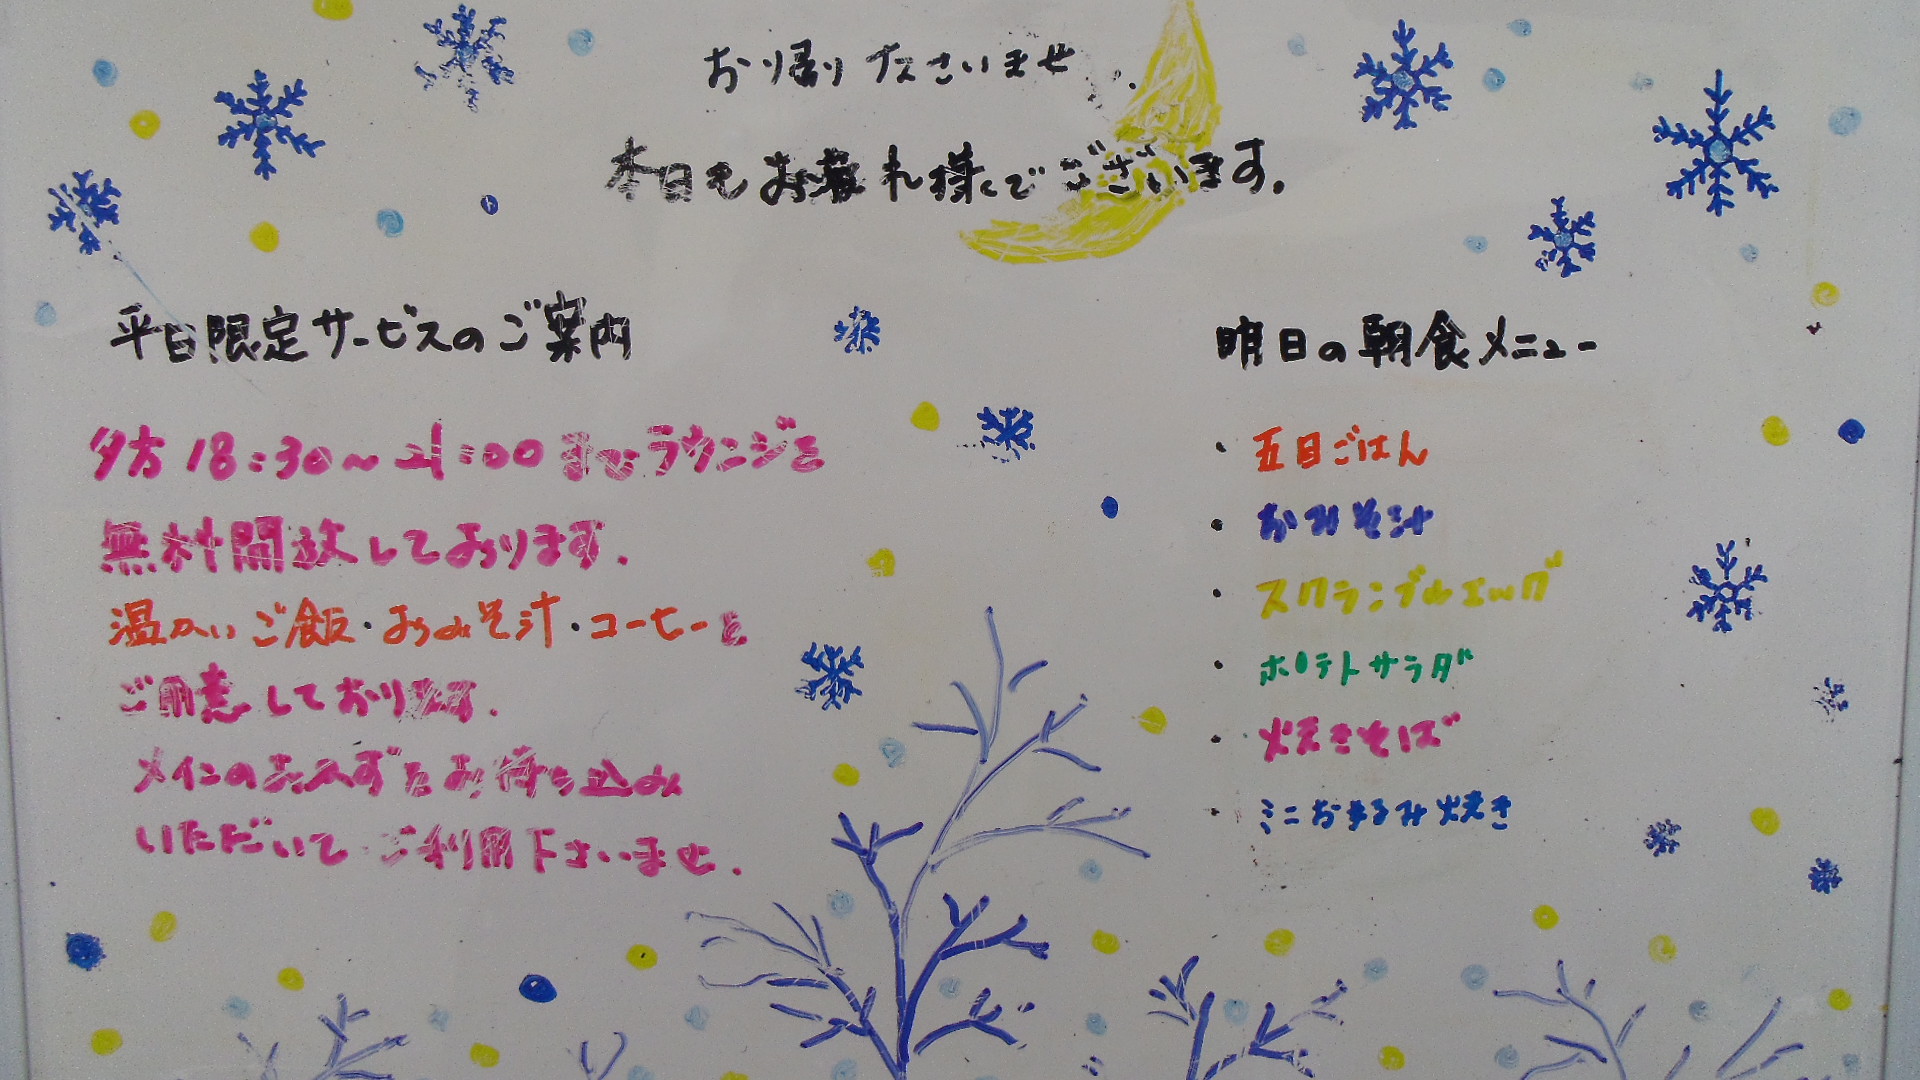 お帰り下さいませ.
本日もお疲れ様でございます。
平日限定サービスのご案内
夕方18:30～21:00までラウンジを
無料開放しております.
温かいご飯・おみそ汁・コーヒーを
ご用意しております.
メインのおかずをお持ち込み
いただいてご利用下さいませ.
明日の朝食メニュー
・五目ごはん
・おみそ汁
・スクランブルエッグ
・ポテトサラダ
・焼きそば
・ミニお好み焼き